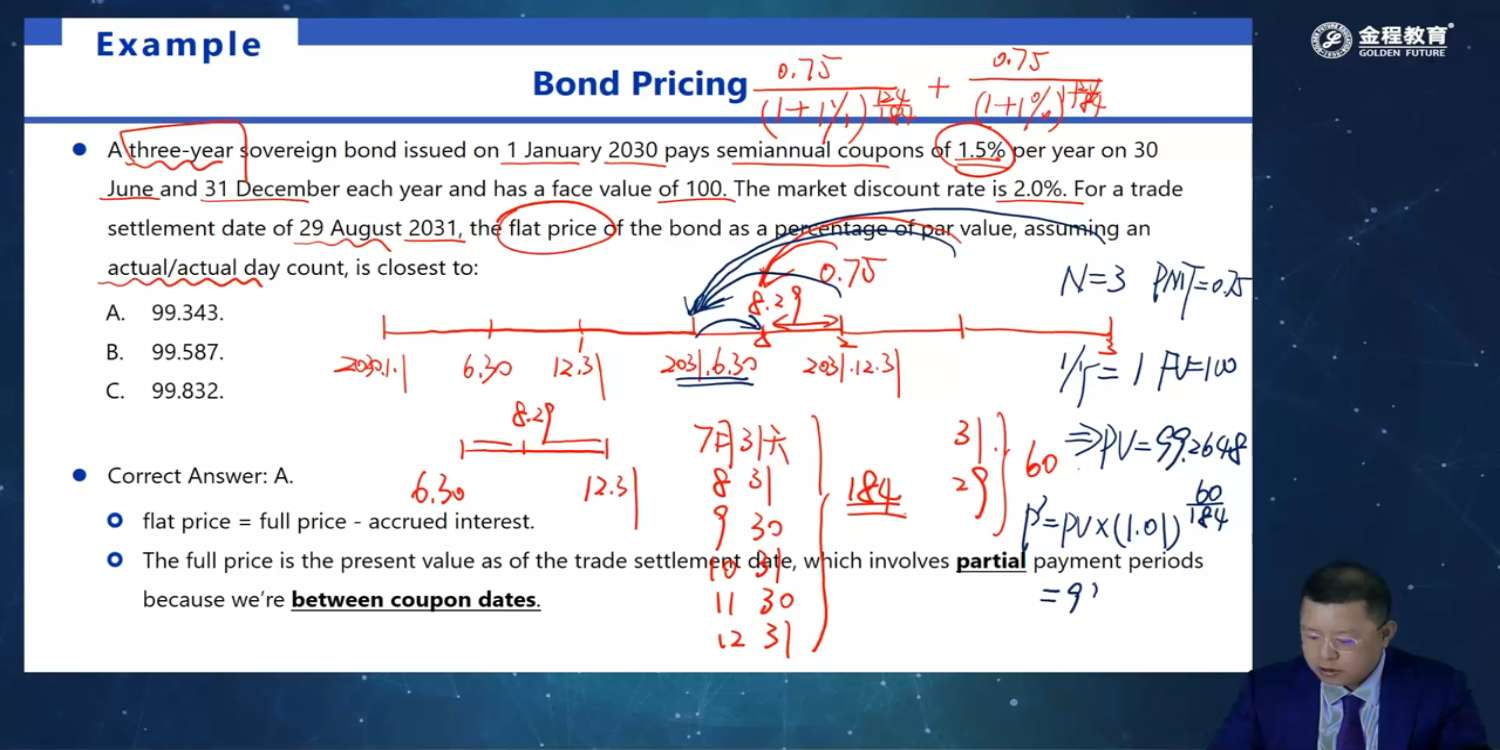 Example
金程教育
GOLDEN FUTURE
Bond Pricing
0.75
(1+1%)
+
0.75
(1+1%)
A three-year sovereign bond issued on 1 January 2030 pays semiannual coupons of 1.5% per year on 30
June and 31 December each year and has a face value of 100. The market discount rate is 2.0%. For a trade
settlement date of 29 August 2031, the flat price of the bond as a percentage of par value, assuming an
actual/actual day count, is closest to:
A. 99.343.
B. 99.587.
C. 99.832.
0.75
8.29
2030.1.1
6.30
12.31
2031.6.30
2031.12.31
2
3
N=3 PMT=0.75
1/Y=1 FV=100
⇒PV=99.2648
P=PV×(1.01)^60/184
=9
8.29
6.30
12.31
7月31天
8 31
9 30
10 31
11 30
12 31
184
31
29
60
Correct Answer: A.
flat price = full price - accrued interest.
The full price is the present value as of the trade settlement date, which involves partial payment periods
because we're between coupon dates.